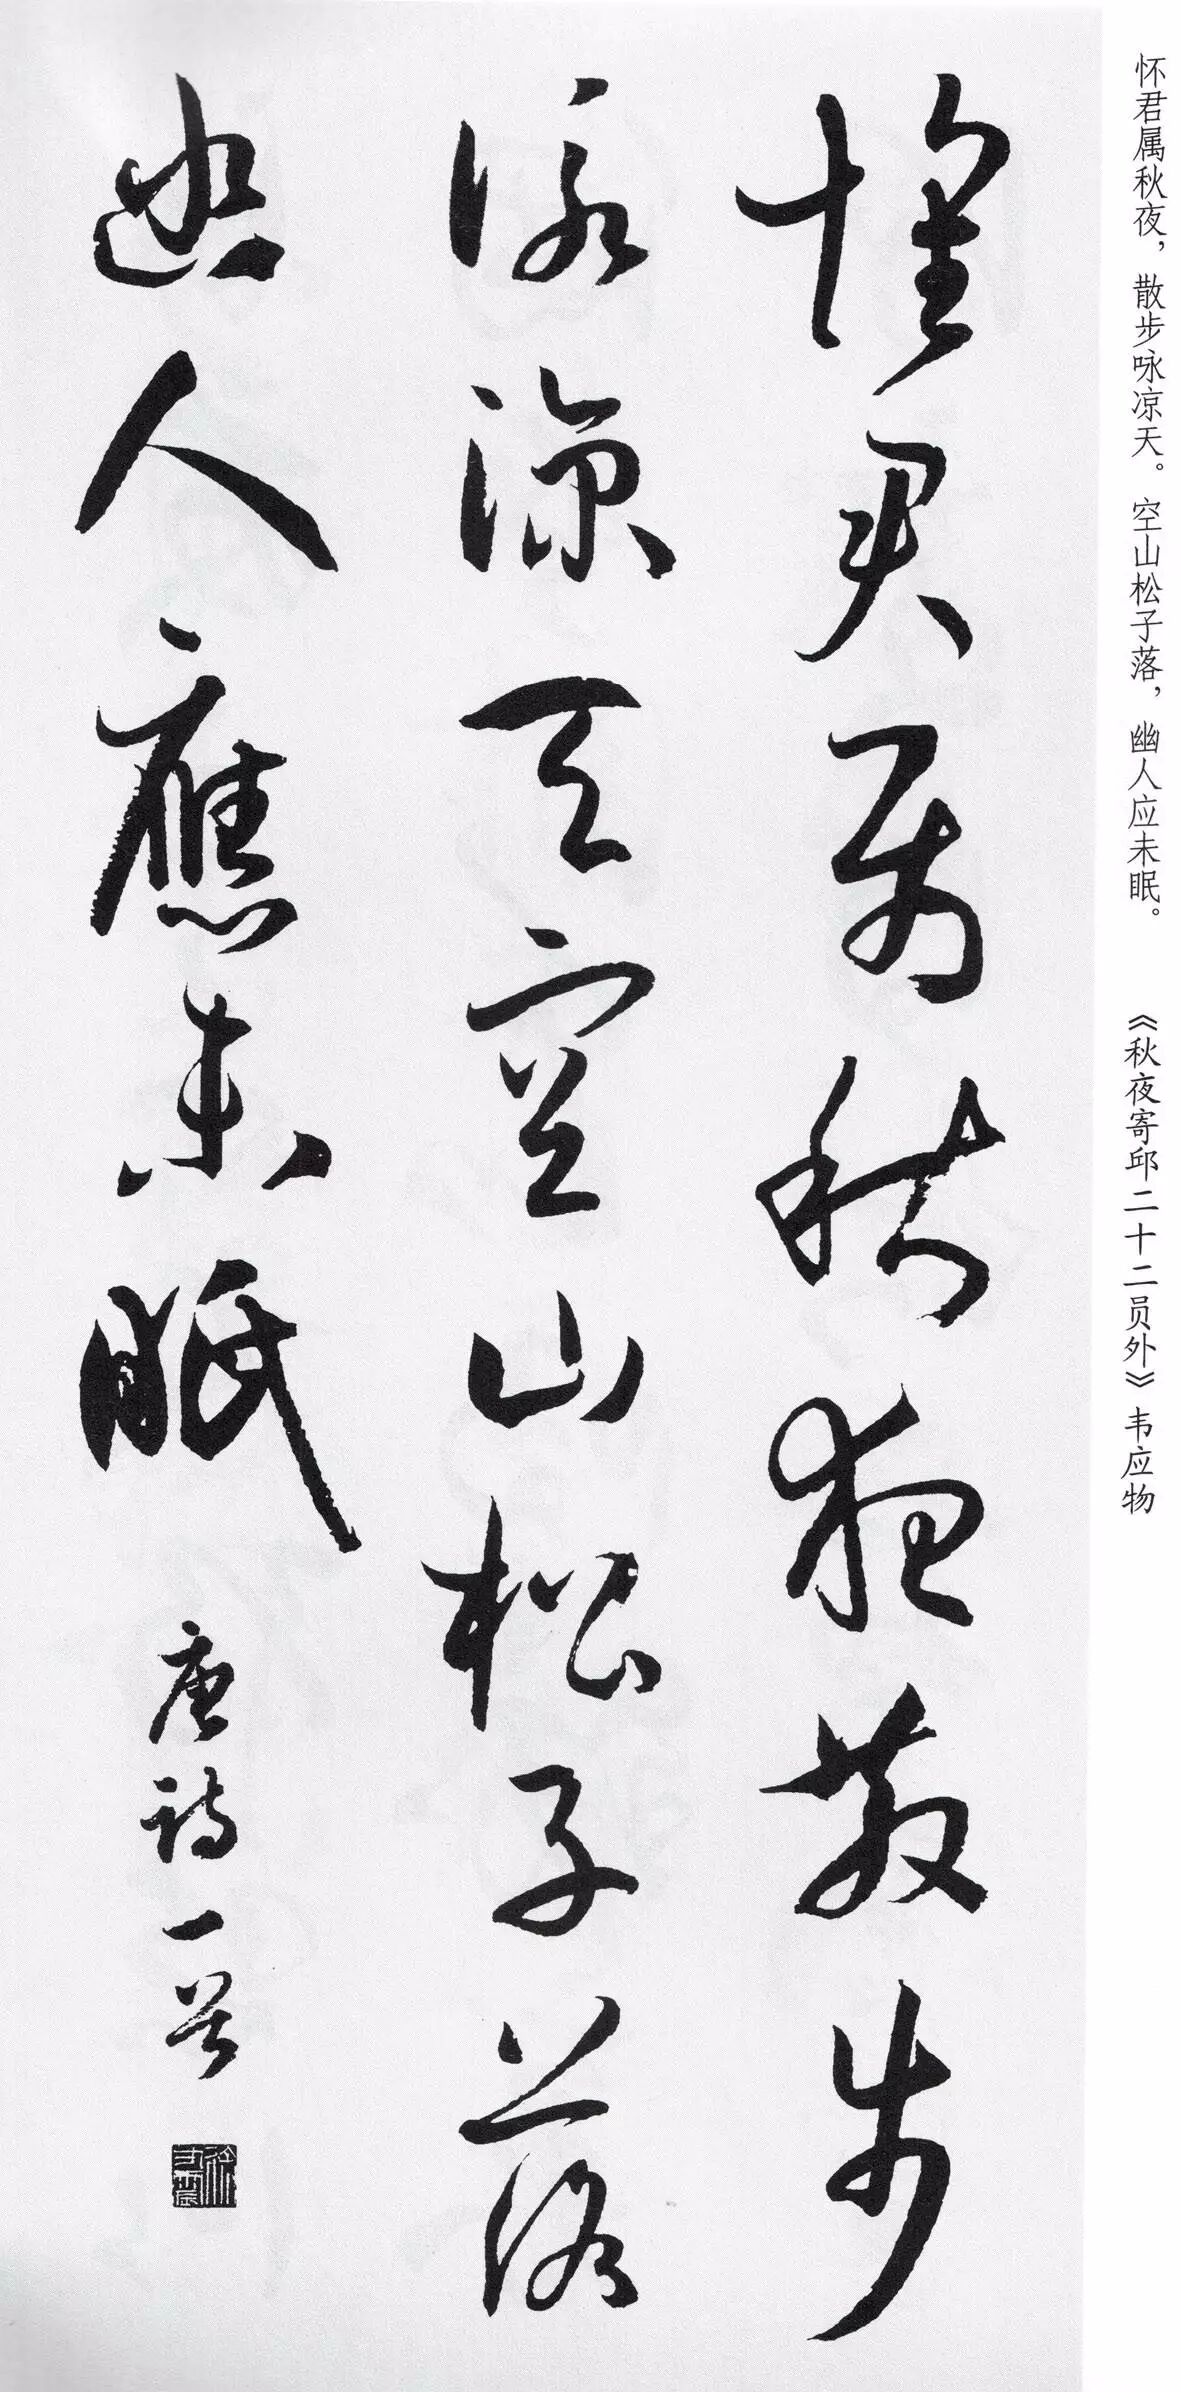 怀君属秋夜，散步咏凉天。空山松子落，幽人应未眠。　《秋夜寄邱二十二员外》韦应物
懷君属秋夜散步
詠涼天空山松子落
幽人應未眠
唐詩一首